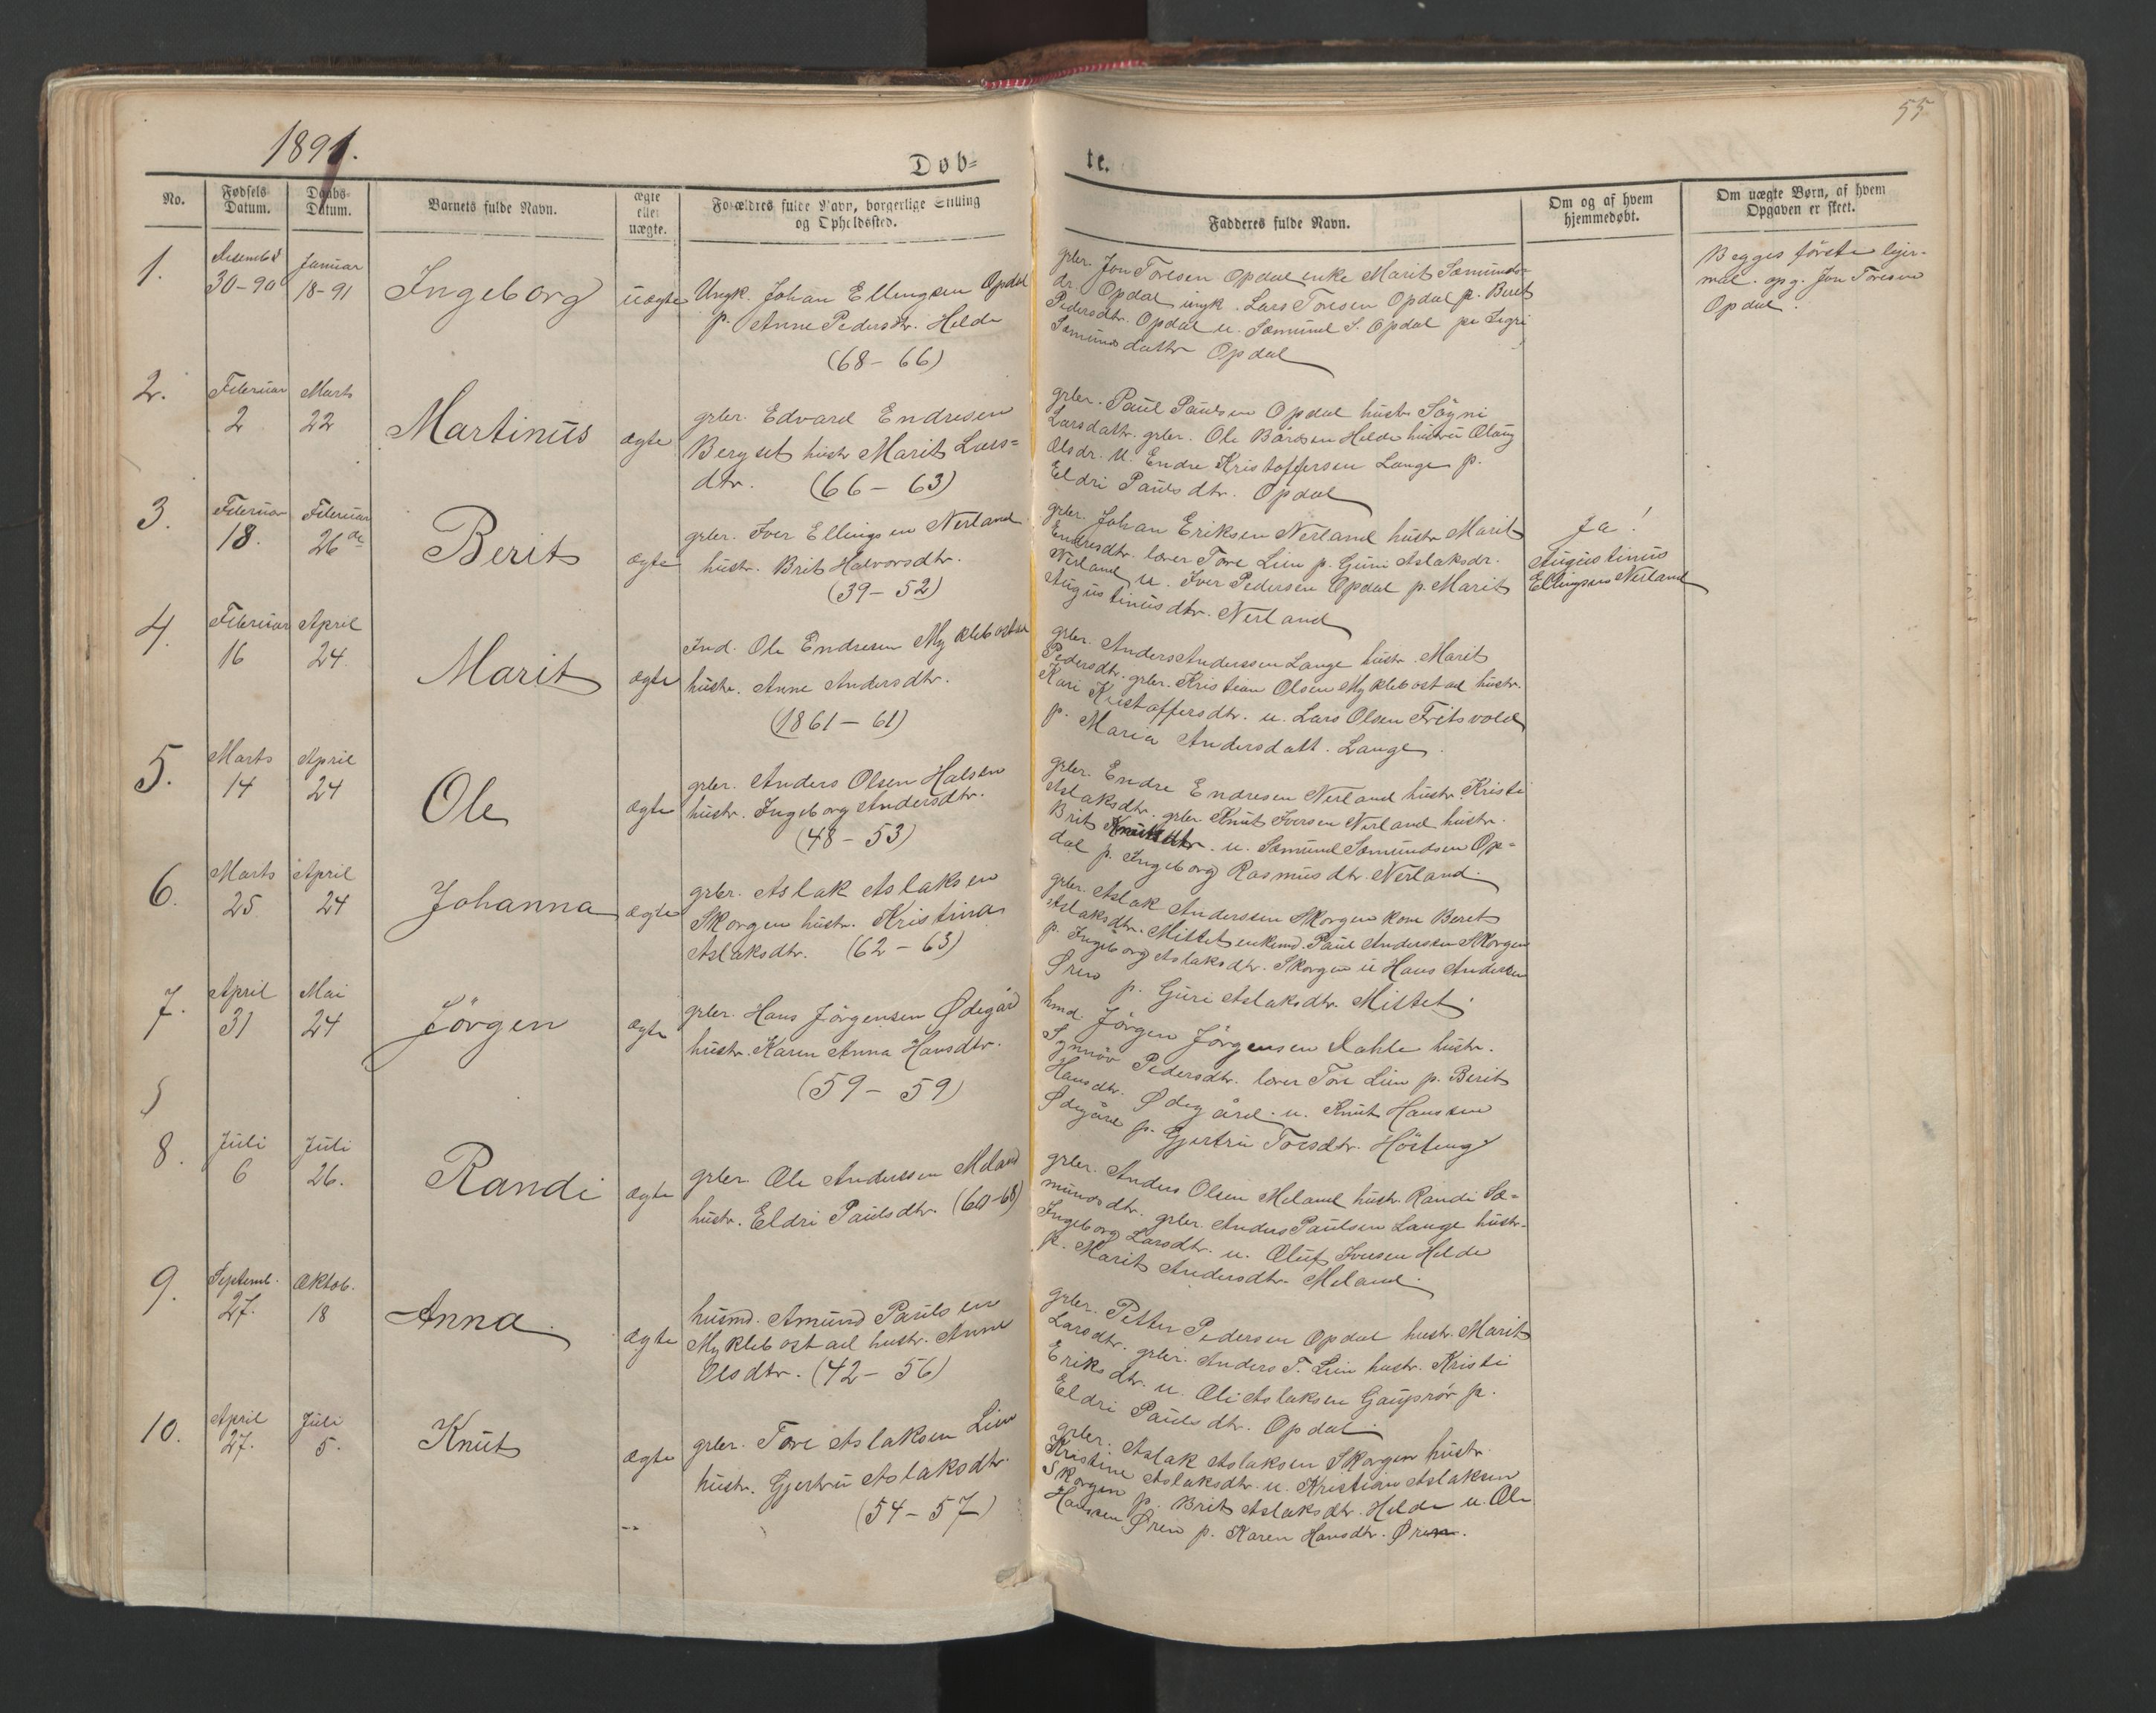 55
1891.
Døb-
te.
No.
Fødsels Datum.
Daabs Datum.
Barnets fulde Navn.
ægte eller uægte.
Forældres fulde Navn, borgerlige Stilling og Opholdssted.
Fadderes fulde Navn.
Om og af hvem hjemmedøbt.
Om uægte Børn, af hvem Opgaven er skeet.
1.
Desembr
30-90
Januar
18-91
Ingeborg
uægte
Ungk. Johan Ellingsen Opdal
p. Anne Pedersdtr. Helde
(68-66)
grbr. Jon Toresen Opdal enke Marit Sæmunds-
dr. Opdal ungk. Lars Toresen Opdal p. Beret
Pedersdtr. Opdal u. Sæmund S. Opdal pe Segri
Sæmundsdattr Opdal
Begges første lejer-
mål. opg. Jon Toresen
Opdal.
2.
Februar
2
Marts
22
Martinus
ægte
grbr. Edvard Endresen
Bergset hustr Marit Lars=
dtr. (66-63)
grbr. Paul Paulsen Opdal hustr Søgni
Larsdattr. grbr. Ole Bårdsen Helde hustru Olaug
Olsdr. U. Endre Kristoffersen Lange p.
Eldri Paulsdtr. Opdal
3.
Februar
18.
Februar
26de
Berit
ægte
grbr. Iver Ellingsen Nerland
hustr. Brit Halvorsdtr.
(39-52)
grbr. Johan Eriksen Nerland hustr Marit
Endresdtr. lærer Tore Lien p. Guni Aslaksdr.
Nerland u. Iver Pedersen Opdal p. Marit
Augustinusdtr. Nerland
Ja!
Augustinus
Ellingsen Nerland
4.
Februar
16
April
24
Marit
ægte
Ind. Ole Endresen Myklebostad
hustr. Anne Andersdtr.
(1861-61)
grbr. Anders Anderssen Lange hustr. Marit
Pedersdtr. grbr. Kristian Olsen Myklebostad hustr.
Kari Kristoffersdtr. u. Lars Olsen Fritsvold
p. Maria Andersdatt. Lange.
5.
Marts
14
April
24
Ole
ægte
grbr. Anders Olsen Halsen
hustr. Ingeborg Andersdtr.
(48-53)
grbr. Endre Endresen Nerland hustr Kristi
Aslaksdtr. grbr. Knut Iversen Nerland hustr.
Brit Knutsdtr. u. Sæmund Sæmundsen Op-
dal p. Ingeborg Rasmusdtr. Nerland.
6.
Marts
25
April
24
Johanna
ægte
grbr. Aslak Aslaksen
Skorgen hustr. Kristina
Aslaksdtr. (62-63)
grbr. Aslak Anderssen Skorgen kone Beret
Aslaksdtr. Mittet enkemd. Paul Andersen Skorgen
p. Ingeborg Aslaksdtr. Skorgen u Hans Andersen
Øren p. Guri Aslaksdtr. Mittet.
7.
April
31
Mai
24
Jörgen
ægte
grbr. Hans Jörgensen Ødegård
hustr. Karen Anna Hansdtr.
(59-59)
hmd. Jörgen Jörgensen Dahle hustr.
Synnöv Pedersdtr. lærer Tore Lien p. Berit
Hansdtr. Ødegård. u. Knut Hanssen
Ødegård p. Gjertru Toresdtr. Hösteng
8.
Juli
6
Juli
26.
Randi
ægte
grbr. Ole Anderssen Meland
hustr. Eldri Paulsdtr. (60-68)
grbr. Anders Olsen Meland hustr. Randi Sæ=
mundsdtr. grbr. Anders Paulsen Lange hustr.
Ingeborg Larsdtr. u. Oluf Iversen Helde
p. Marit Andersdtr. Meland.
9.
Septemb.
27.
Oktob.
18
Anna
ægte
husmd. Amund Paulsen
Myklebostad hustr. Anne
Olsdtr. (42-56)
grbr. Petter Pedersen Opdal hustr. Marit
Larsdtr. grbr. Anders T. Lien hustr. Kristi
Eriksdtr. u. Ole Aslaksen Gauprör p.
Eldri Paulsdtr. Opdal
10.
April
27.
Juli
5.
Knut
ægte
grbr. Tore Aslaksen Lien
hustr. Gjertru Aslaksdtr.
(54-57)
grbr. Aslak Aslaksen Skorgen hustr.
Kristine Aslaksdtr. u. Kristian Aslaksen
Skorgen p. Brit Aslaksdtr. Helde u. Ole
Hanssen Øren p. Karen Hansdtr. Øren.